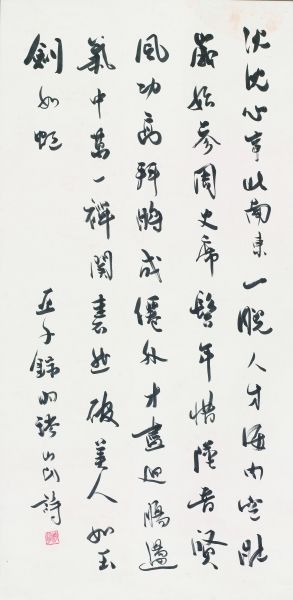 沈沈心事北南東一睨人才海内空壯
歲始參周史席髫年惜墮晉賢
風功高拜將成僊外才盡迴腸盪
氣中萬一禪關砉然破美人如玉
劍如虹
亞子錄羽琌山民詩